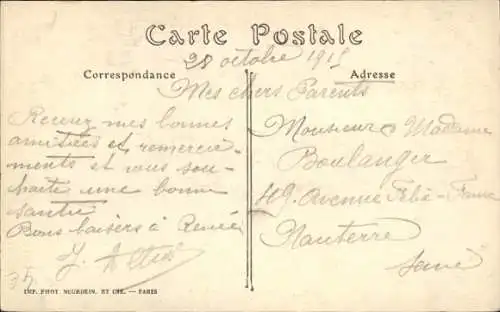 Carte Postale
28 octobre 191
Correspondance
Adresse
Mes chers Parents
Recevez mes bonnes
amitiées et remercie-
ments et vous sou-
haite une bonne
santée
Bons baisers à Renée
Monsieur & Madame
Boulanger
49 Avenue Félix-Faure
Nanterre
Seine
35
IMP. PHOT. NEURDEIN. ET CIE. — PARIS